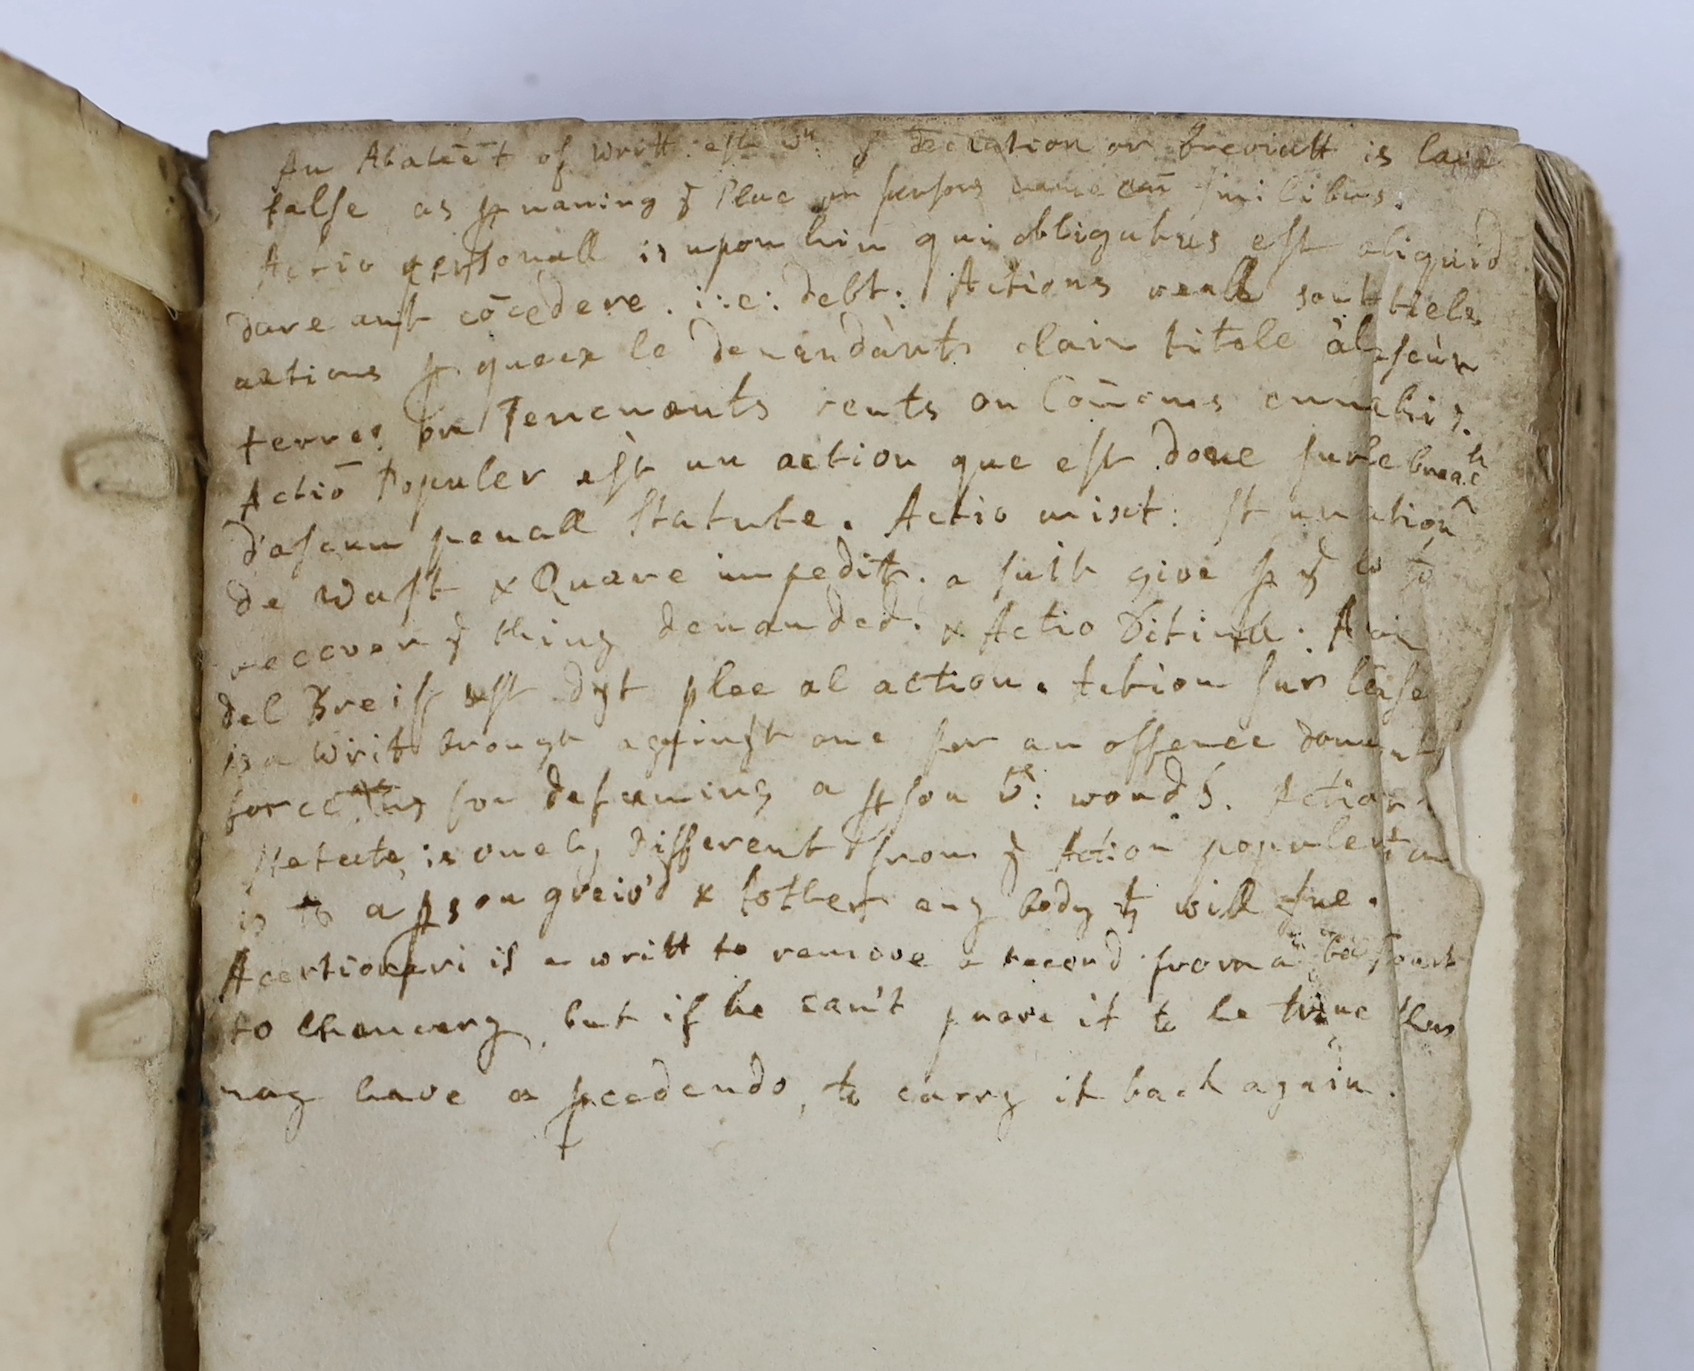 An Abatēēt of writt est wn: ye Declation or breviatt is laid
false as p naming ye Place or persons name cum similibus.
Actio personall is upon him qui obligatus est aliquid
dare aut cōcedere. i:e: debt: Actions reall sont tiels
actions p queux le demandants claim titole al ascun
terres on Tenements rents ou Cōmons
Actiō Populer est un action que est done sur le breach
d'ascun penall Statute. Actio mixt: st un ation
de Wast & Quare impedit. a suit give p ye to
recover ye thing demanded. & Actio
del Breif est dyt plee al action. Action sur Case
is a Writt brought against one for an offence done
force for defaming a pson wt: words. Action
Statute, is onely different from ye Action populer
is to a pson greiv'd & tother any body yt will sue.
A certiorari is a writt to remove a record from a Court
to Chancery, but if he can't prove it to be true then
may have a pcedendo, to carry it back again.